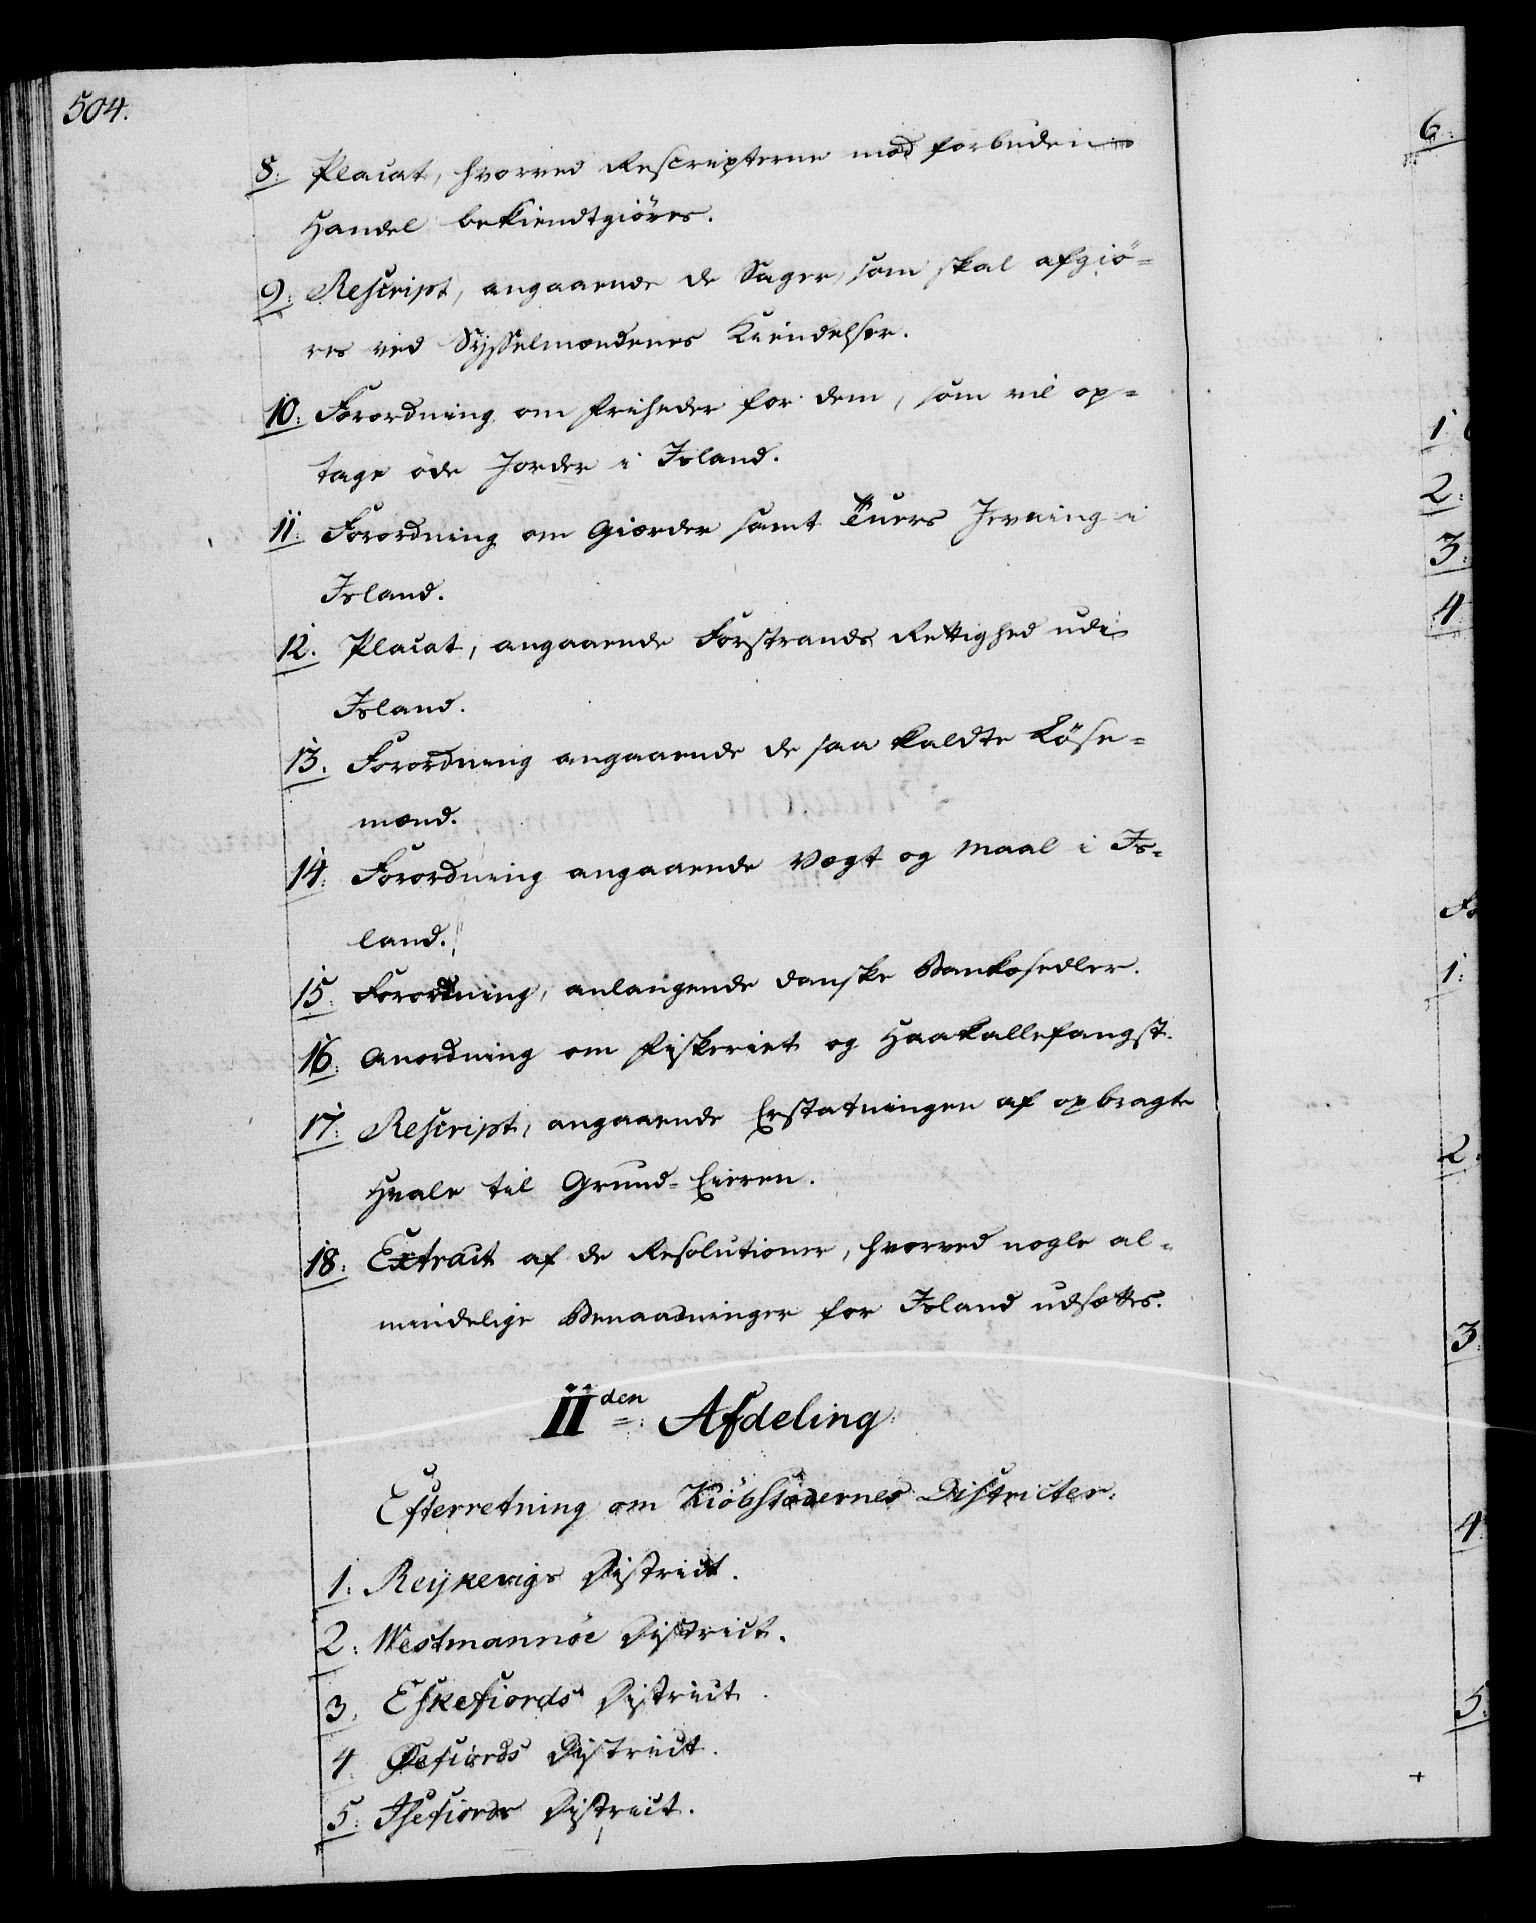 504.
8. Placat, hvorved Rescripterne mod forbuden
Handel bekiendtgiöres.
9. Rescript, angaaende de Sager, som skal afgiö-
res ved Sysselmændenes Kiendelser.
10. Forordning om Friheder for dem, som vil op-
tage öde Jorder i Island.
11. Forordning om Gierder samt Tuers Jevning i
Island.
12. Placat, angaaende Forstrands Rettighed udi
Island.
13. Forordning angaaende de saa kaldte Löse-
mænd.
14. Forordning angaaende Vægt og Maal i Is-
land.
15. Forordning, anlangende danske Bankosedler.
16. Anordning om Fiskeriet og Haakallefangst.
17. Rescript, angaaende Erstatningen af opbragte
Hvale til Grund-Eieren.
18. Extract af de Resolutioner, hvorved nogle al-
mindelige Benaadninger for Island udsættes.
IIden Afdeling
Efterretning om Kiöbstædernes Districter.
1. Reykevigs District.
2. Westmannöe District.
3. Eskefiords District.
4 Øefiords District.
5. Isefiords District.
6.
1
2.
3.
4
1.
2.
3
4
5.